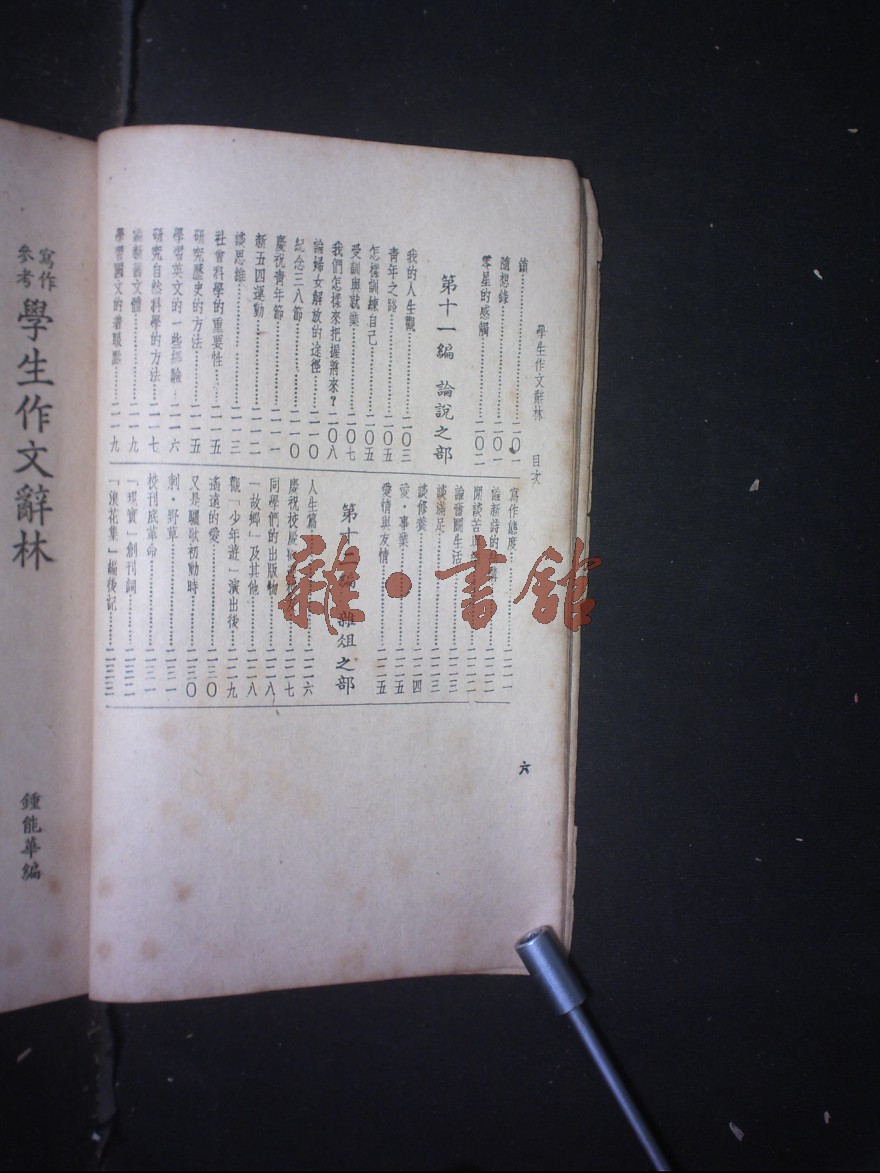 學生作文辭林 目次
六
隨想錄……二〇一
零星的感觸……二〇二
第十一編 論說之部
我的人生觀……二〇三
青年之路……二〇五
怎樣訓練自己……二〇五
受訓與就業……二〇七
我們怎樣來把握將來？……二〇八
論婦女解放的途徑……二一〇
紀念三八節……二一〇
慶祝青年節……二一一
新五四運動……二一二
談思維……二一三
社會科學的重要性……二一五
研究歷史的方法……二一五
學習英文的一些經驗……二一六
研究自然科學的方法……二一七
論新舊文體……二一九
學習國文的着眼點……二一九
寫作態度……二二一
論新詩的
閒談苦
論奮鬭生活……二二三
談滿足……二二三
談修養……二二四
愛·事業……二二五
愛情與友情……二二五
第十二編 雜俎之部
人生篇……二二六
慶祝校慶……二二七
同學們的出版物……二二八
「故鄉」及其他……二二八
觀「少年遊」演出後……二二九
遙遠的愛……二三〇
又是驪歌初動時……二三〇
刺·野草……二三一
校刊底革命……二三一
「現實」創刊詞……二三二
「浪花集」編後記……二三三
寫作參考
學生作文辭林
鍾能華編
雜·書館